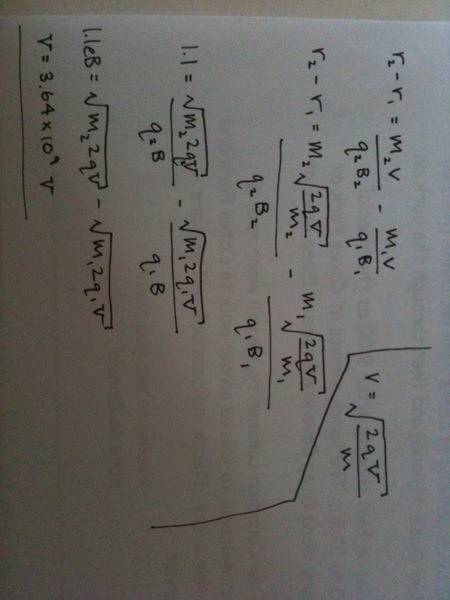 r₂ - r₁ = m₂v/q₂B₂ - m₁v/q₁B₁
v = √(2qV/m)
r₂ - r₁ = m₂√(2qV/m₂)/q₂B₂ - m₁√(2qV/m₁)/q₁B₁
1.1 = √(m₂2qV)/q₂B - √(m₁2q₁V)/q₁B
1.1eB = √(m₂2qV) - √(m₁2q₁V)
V = 3.64×10⁹ V